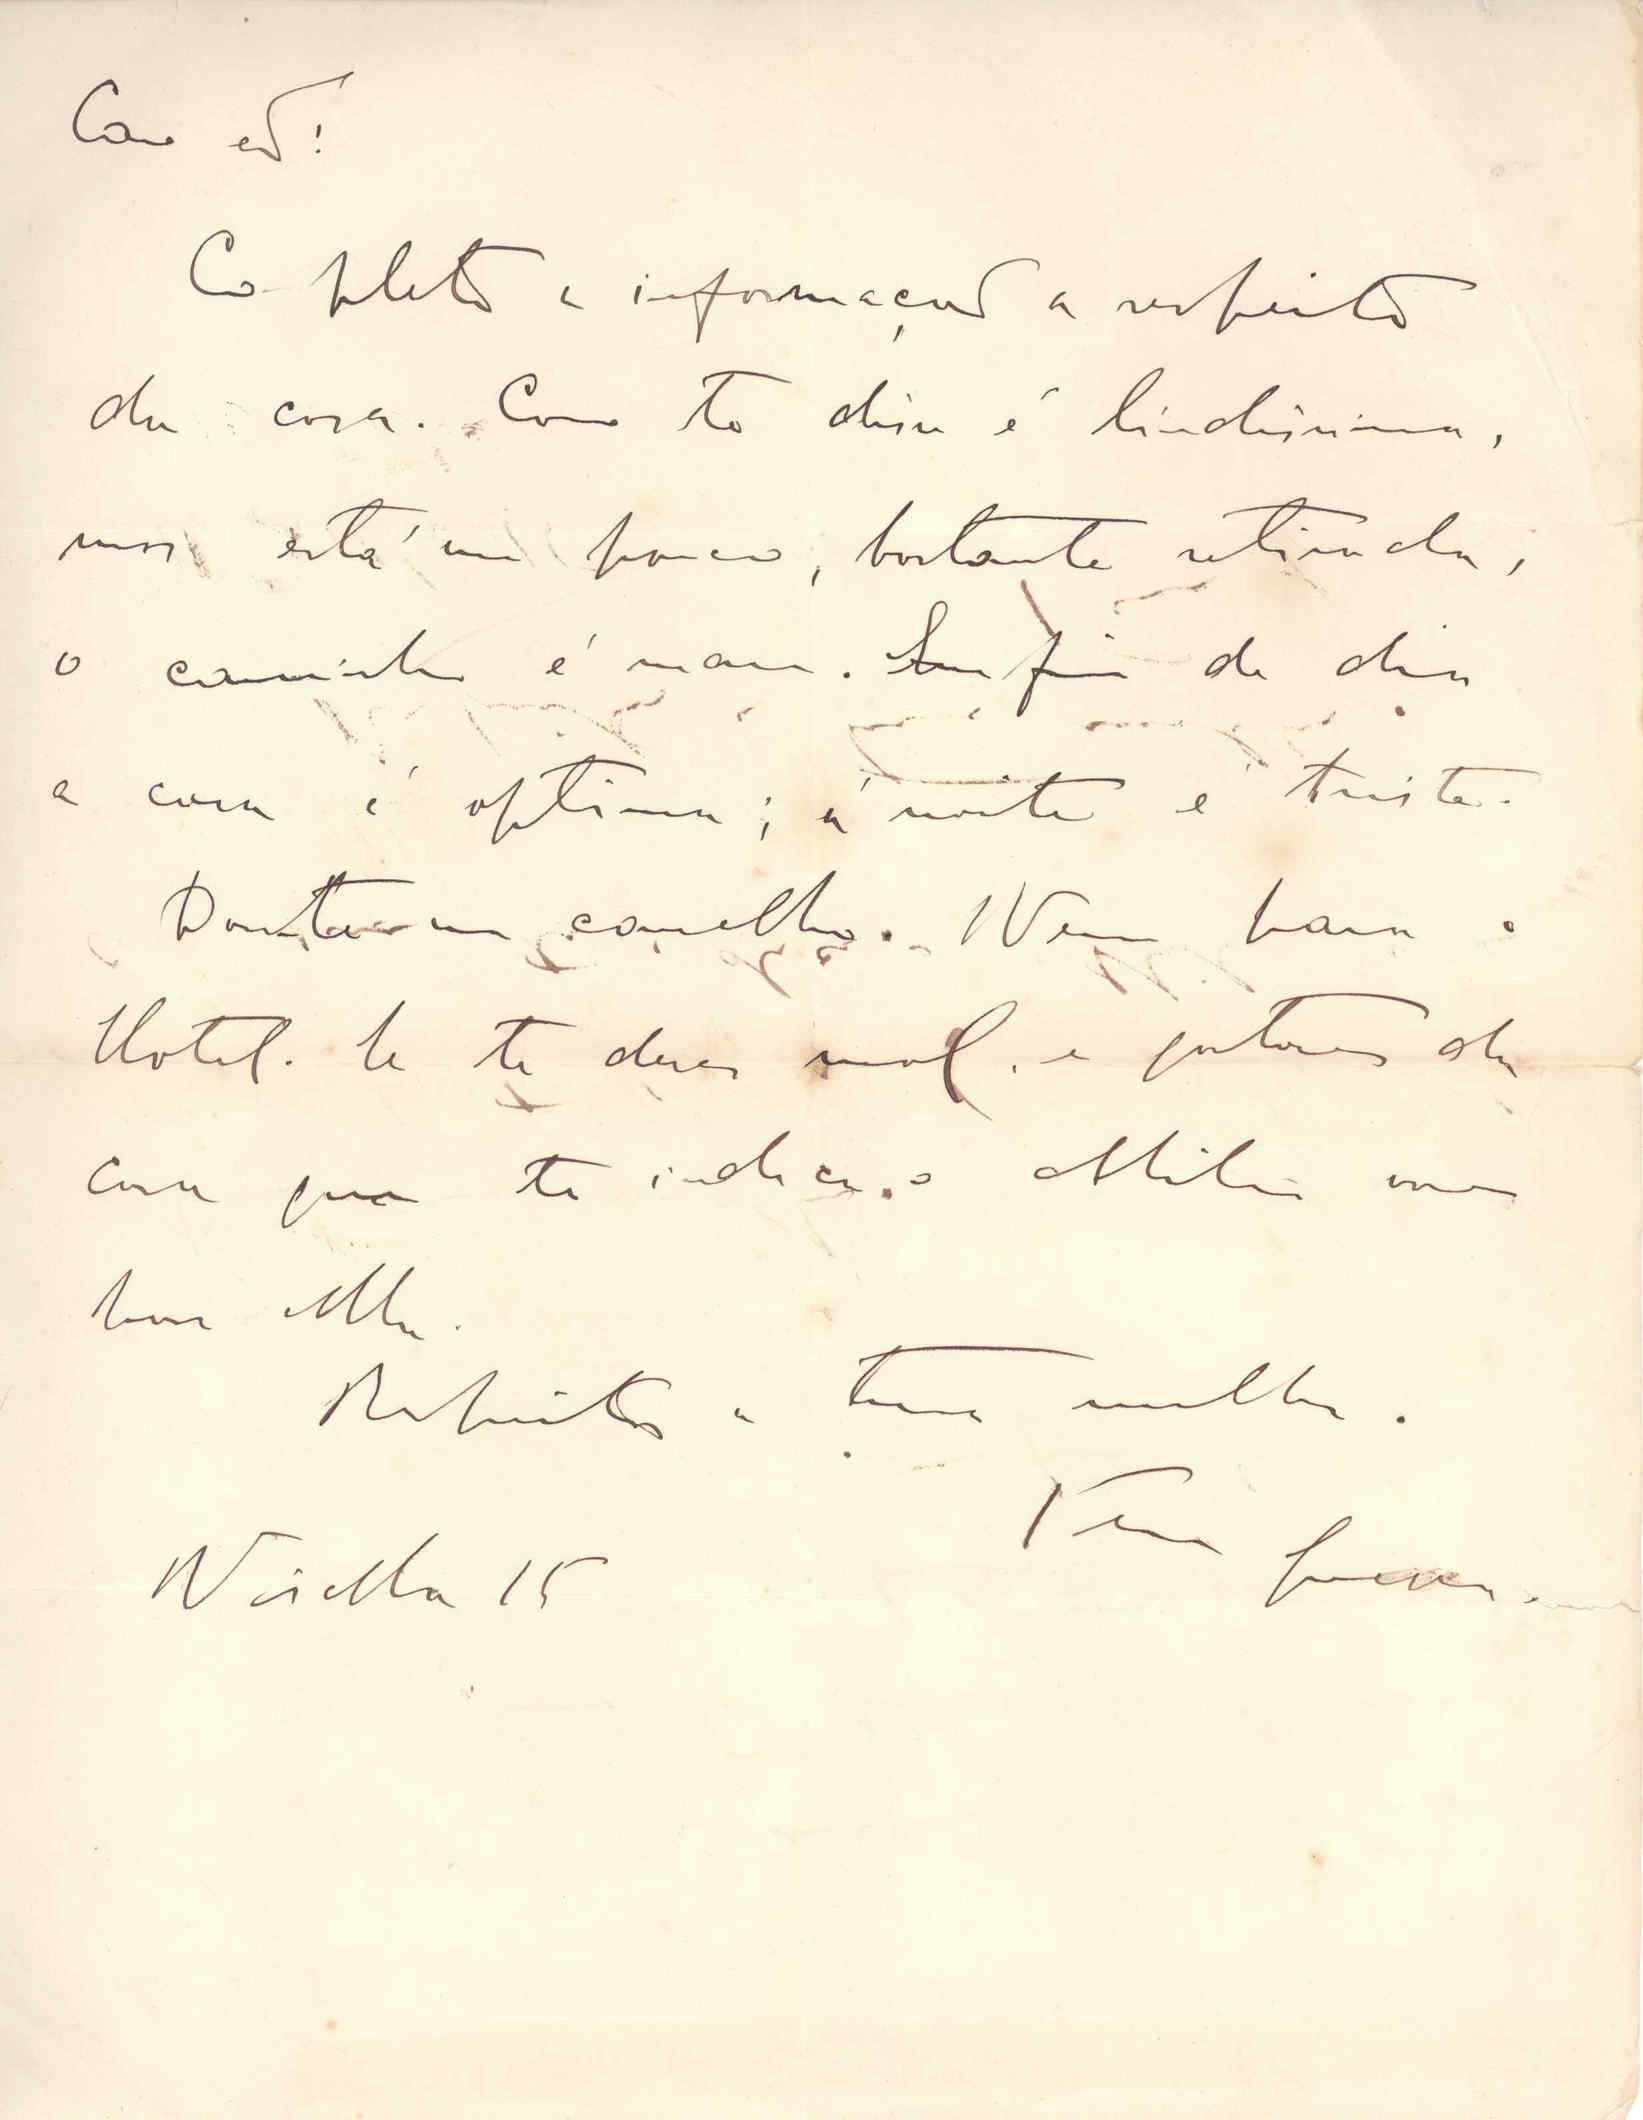 Caro ed!
Completo a informação a respeito
da casa. Como te disse é lindissima,
mas está um pouco, bastante retirada,
o caminho é mau. Emfim de dia
a casa é optima; á noite é triste.
Dou-te um conselho. Vem para o
Hotel. Se te deres mal, e gostares da
casa que te indica o Mil vae
para ella.
Respeitos a tua mulher.
Teu
Visella 15